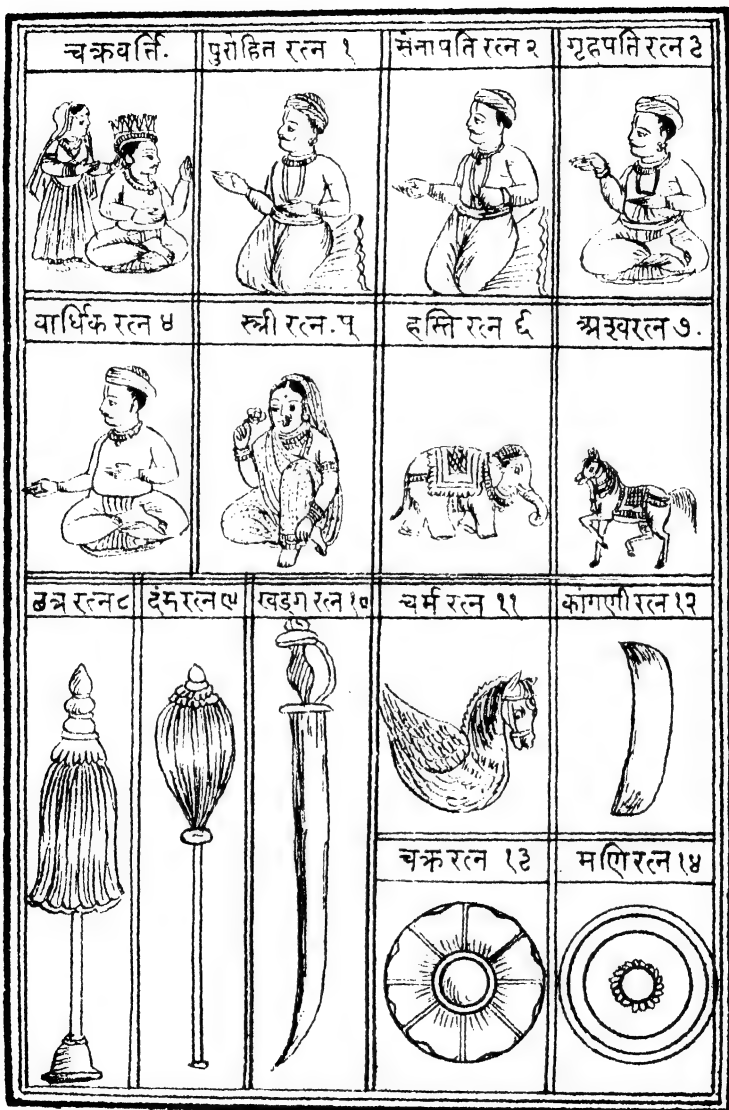 चक्रवर्त्ति.
पुरोहित रत्न १
सेनापति रत्न २
गृहपति रत्न ३
वार्धिक रत्न ४
स्त्री रत्न. ५
हस्ति रत्न ६
अश्वरत्न ७.
छत्र रत्न ८
दंम रत्न ९
खड्ग रत्न १०
चर्म रत्न ११
कांगणी रत्न १२
चक्र रत्न १३
मणि रत्न १४